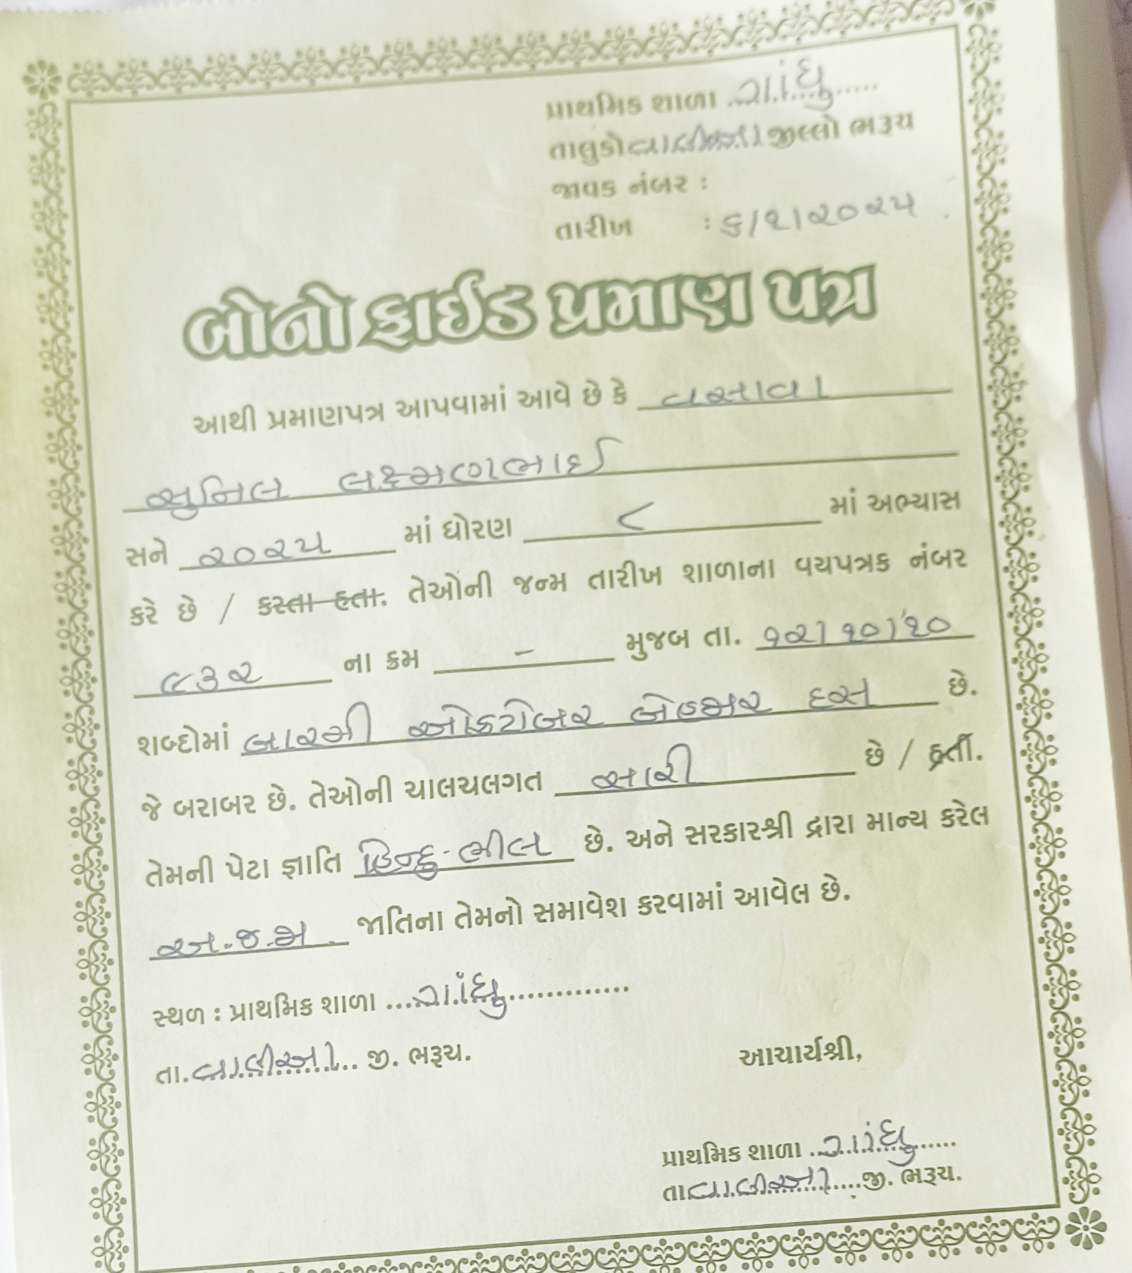 પ્રાથમિક શાળા ..ગાંધુ.....
તાલુકો વાલીયા જીલ્લો ભરૂચ
જાવક નંબર :
તારીખ : ૬/૧/૨૦૨૫
બોનોફાઈડ પ્રમાણ પત્ર
આથી પ્રમાણપત્ર આપવામાં આવે છે કે વસાવા
સુનિલ લક્ષ્મણભાઈ
સને ૨૦૨૫ માં ધોરણ ૮ માં અભ્યાસ
કરે છે / કરતા હતા. તેઓની જન્મ તારીખ શાળાના વયપત્રક નંબર
૮૩૨ ના ક્રમ - મુજબ તા. ૧૨/૧૦/૧૦
શબ્દોમાં બારમી ઓકટોબર બેહજાર દસ છે.
જે બરાબર છે. તેઓની ચાલચલગત સારી છે / હતી.
તેમની પેટા જ્ઞાતિ હિન્દુ-ભીલ છે. અને સરકારશ્રી દ્વારા માન્ય કરેલ
અ.જ.જા. જાતિના તેમનો સમાવેશ કરવામાં આવેલ છે.
સ્થળ : પ્રાથમિક શાળા ...ગાંધુ.............
તા.વાલીયા.. જી. ભરૂચ.
આચાર્યશ્રી,
પ્રાથમિક શાળા ..ગાંધુ.....
તા વાલીયા....જી. ભરૂચ.